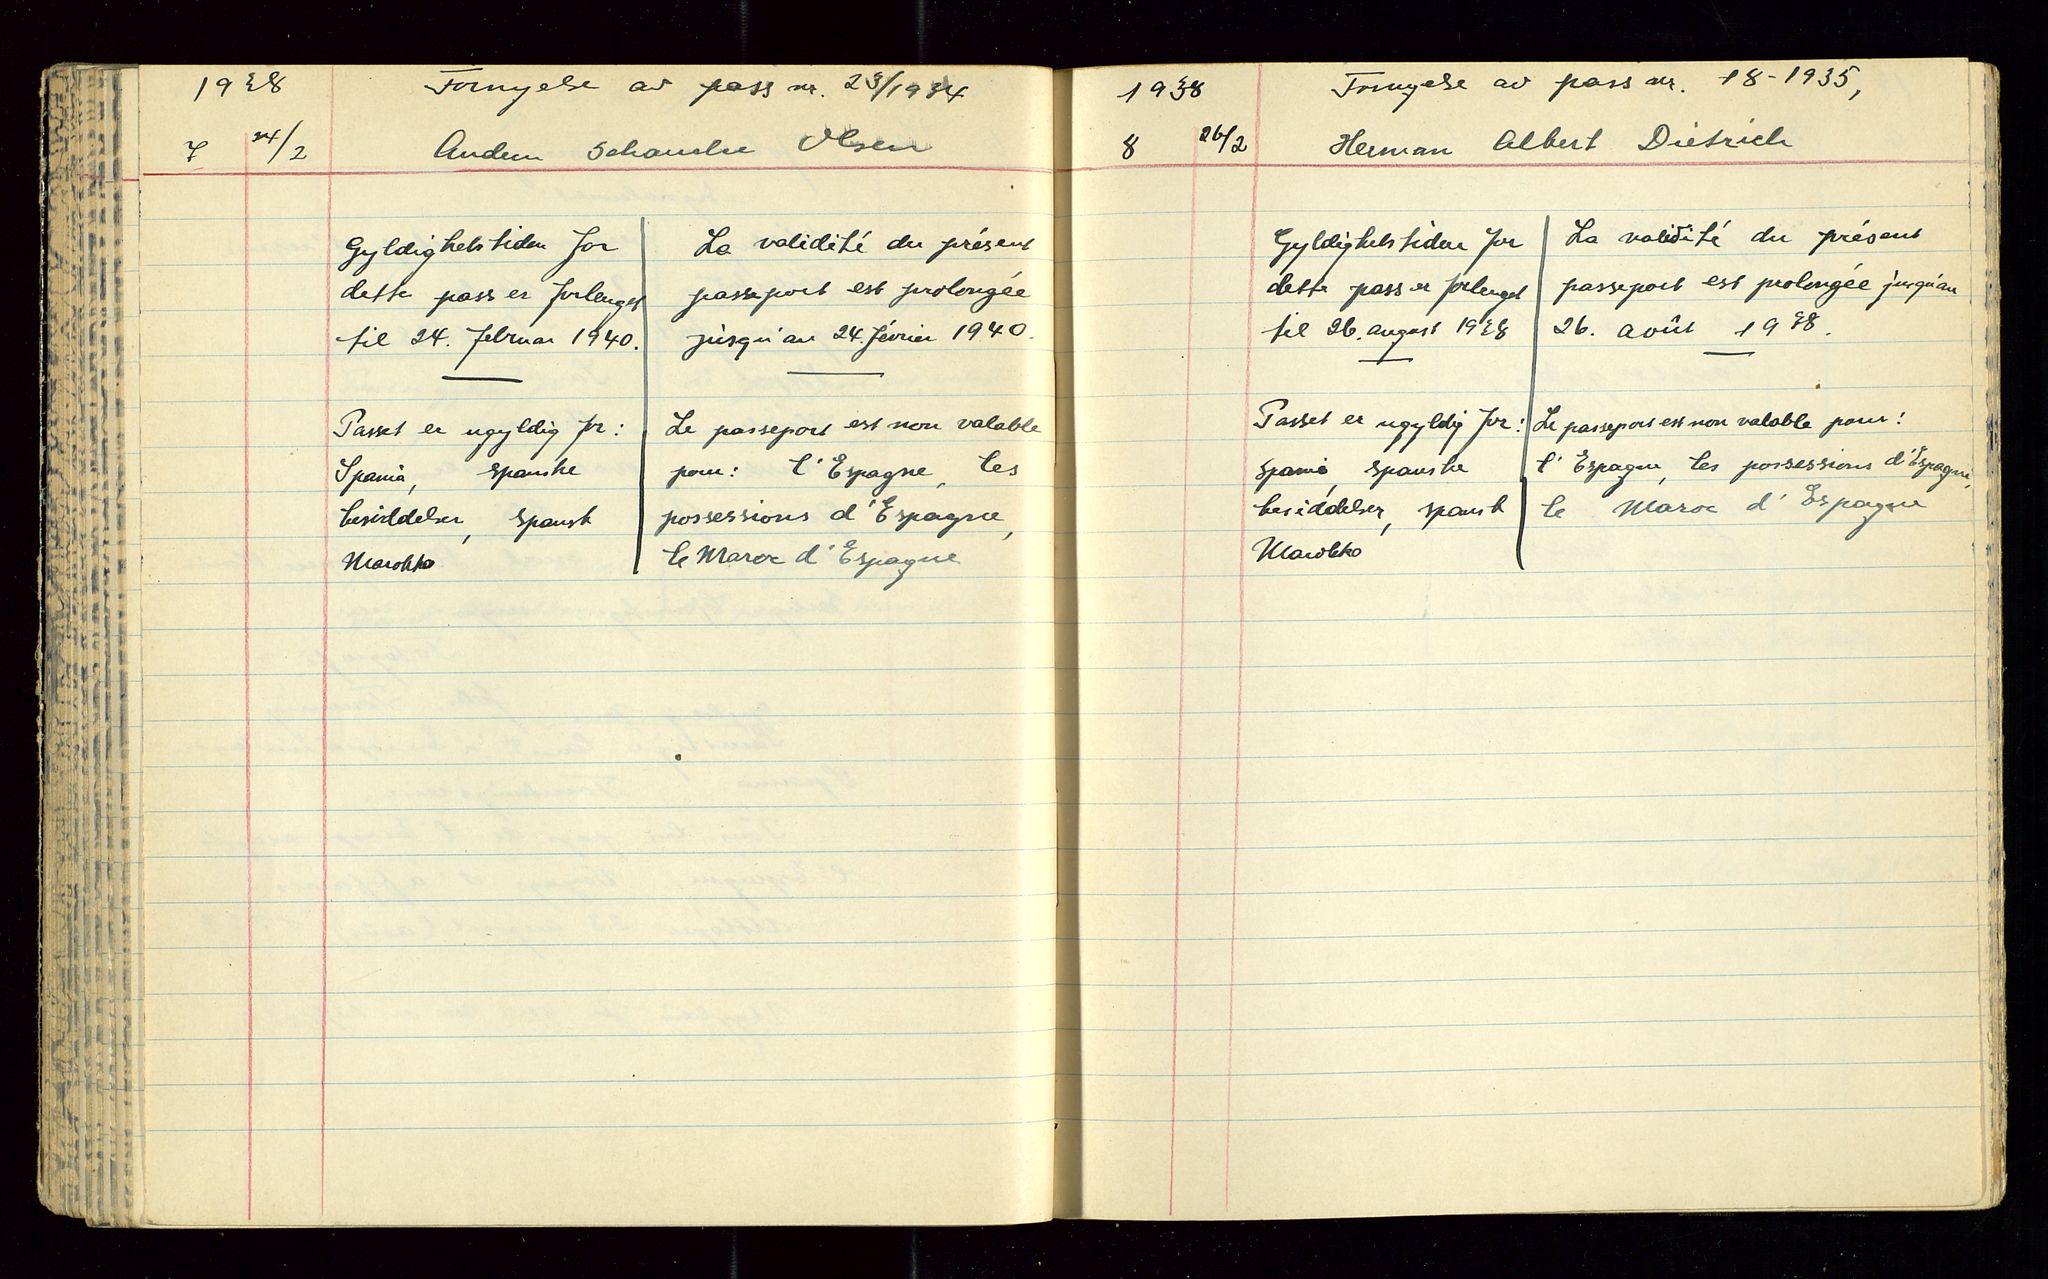 1938 Fornyelse av pass nr. 23/1934
7 24/2 Anders Schanche Olsen
Gyldighetstiden for
dette pass er forlenget
til 24. februar 1940.
La validité du présent
passeport est prolongée
jusqu'au 24. février 1940.
Passet er ugyldig for:
Spania, spanske
besiddelser, spansk
Marokko
Le passeport est non valable
pour: l'Espagne, les
possessions d'Espagne,
le Maroc d'Espagne
1938 Fornyelse av pass nr. 18-1935,
8 26/2 Herman Albert Dietrich
Gyldighetstiden for
dette pass er forlenget
til 26. august 1938
La validité du présent
passeport est prolongée jusqu'au
26. août 1938.
Passet er ugyldig for:
Spania, spanske
besiddelser, spansk
Marokko
Le passeport est non valable pour:
l'Espagne, les possessions d'Espagne,
le Maroc d'Espagne